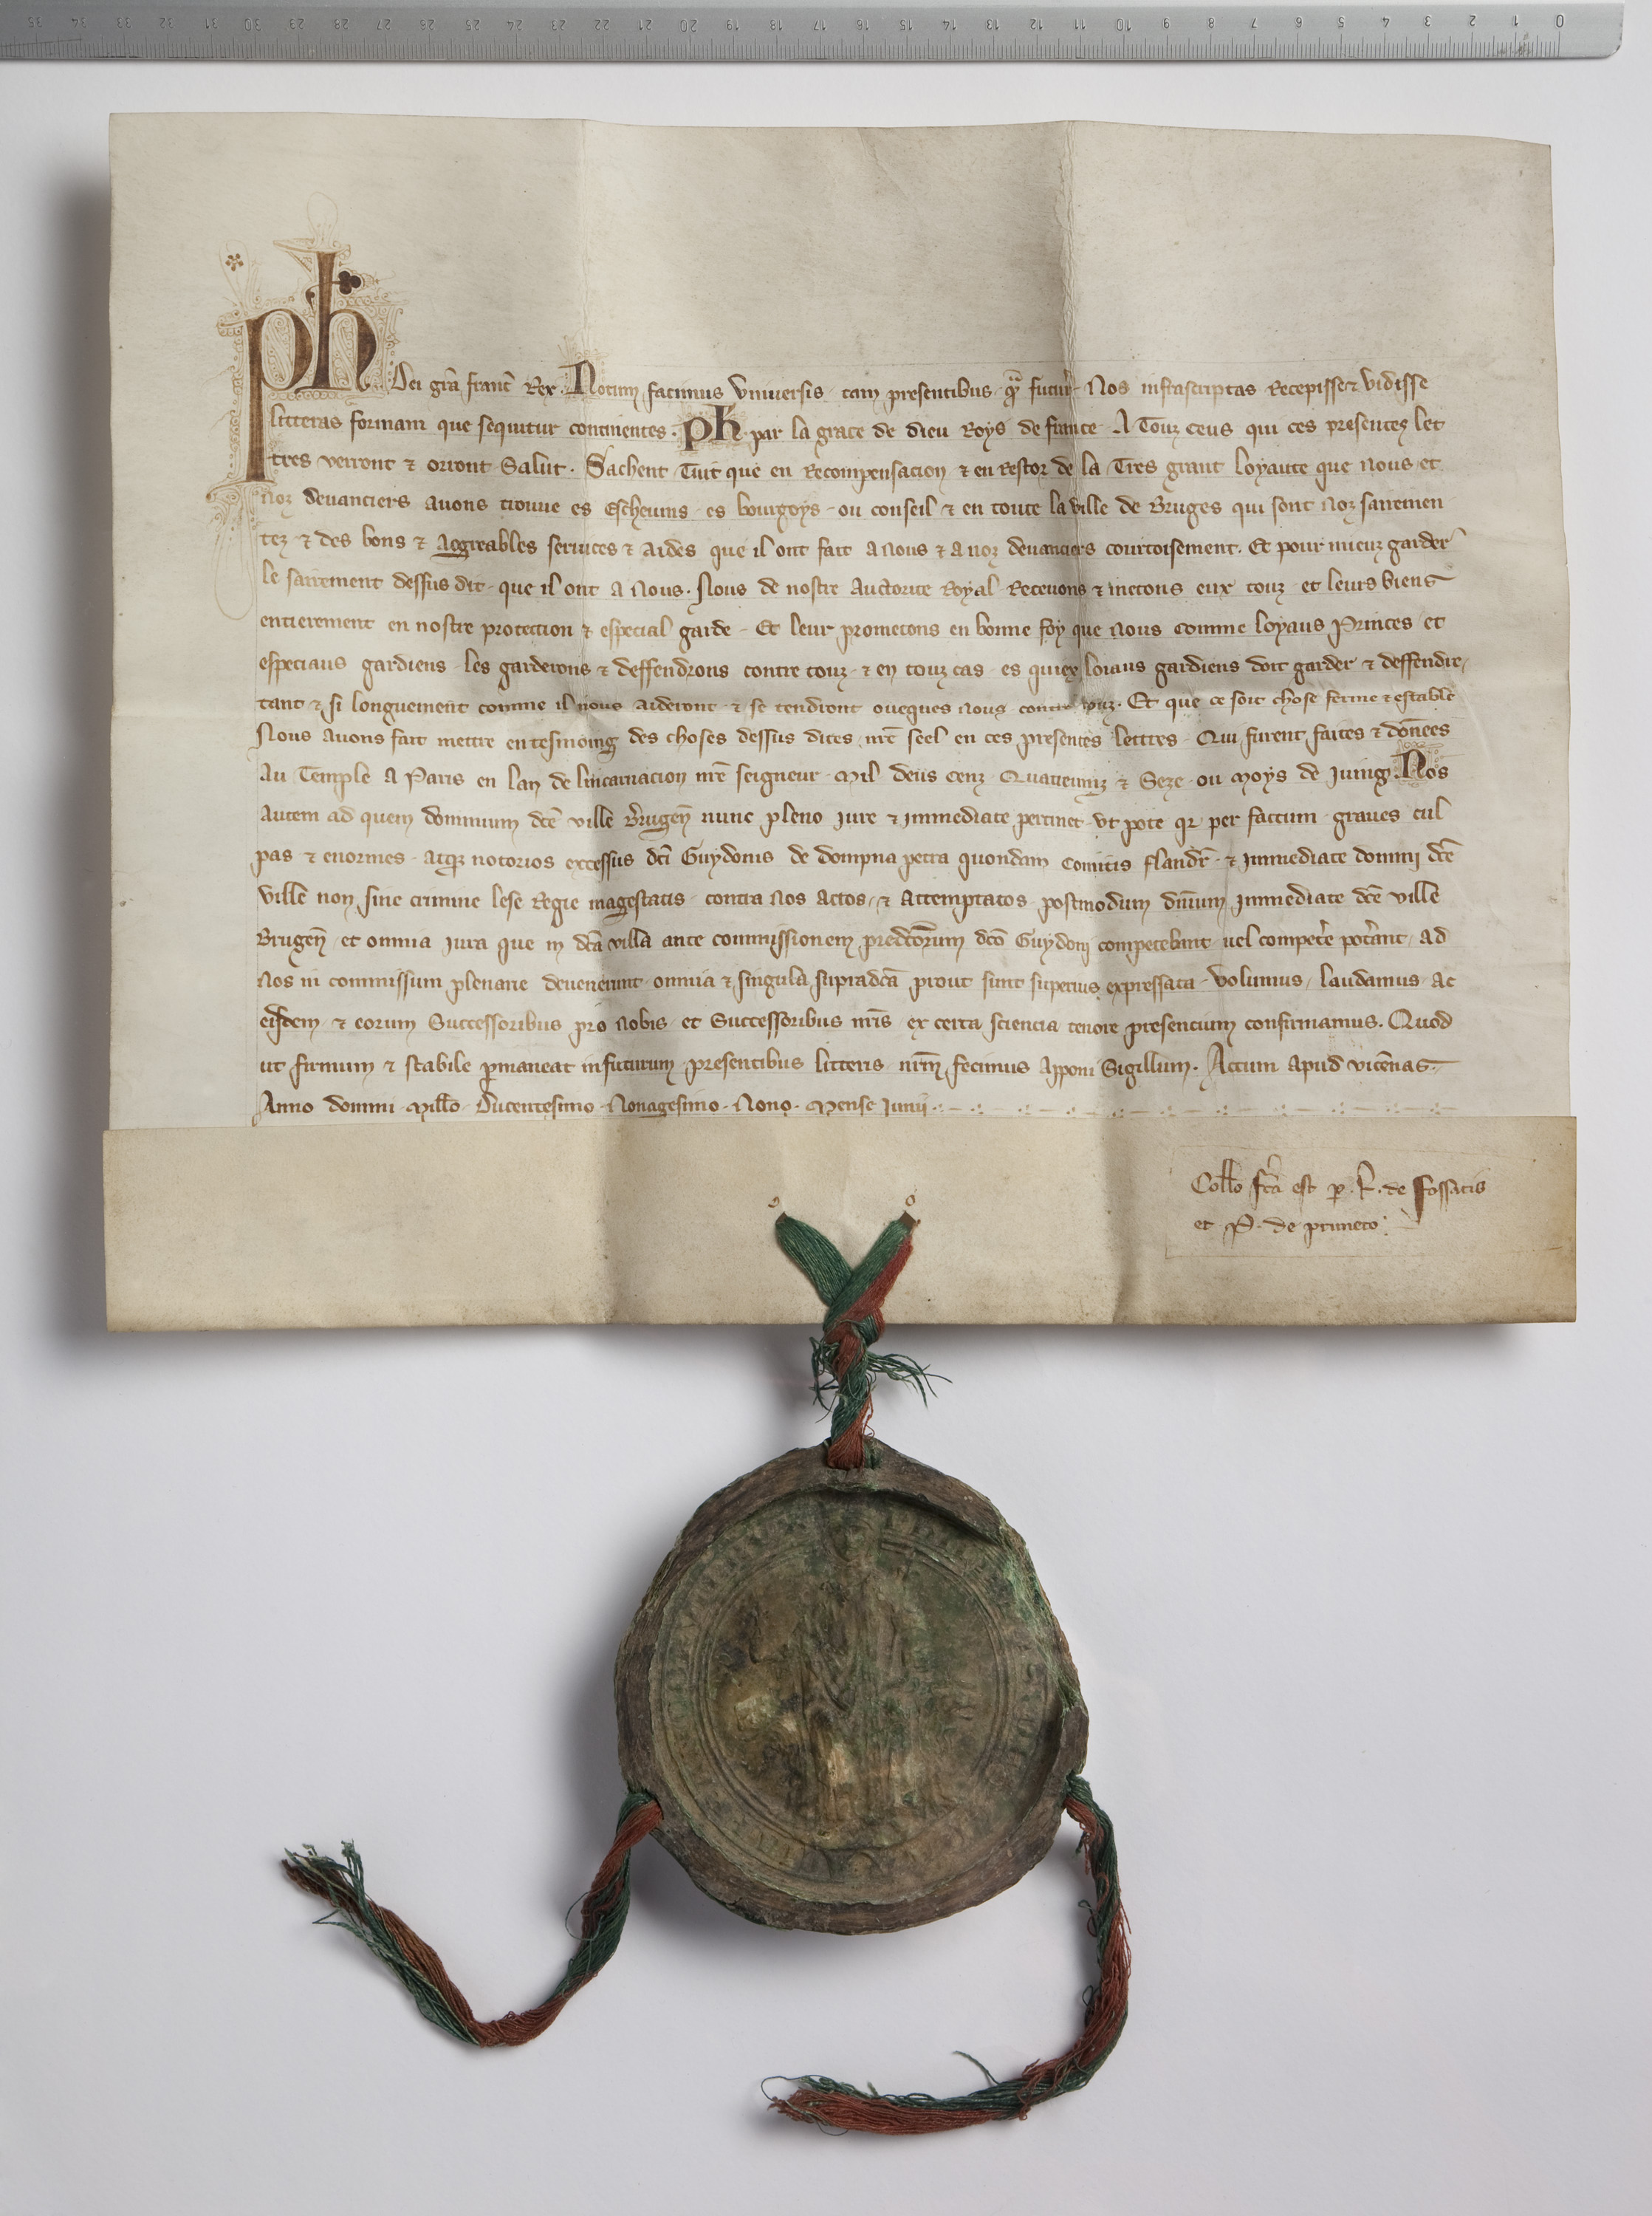 35 34 33 32 31 30 29 28 27 26 25 24 23 22 21 20 19 18 17 16 15 14 13 12 11 10 9 8 7 6 5 4 3 2 1 0
Ph Dei gra franc Rex. Notum facimus Universis tam presentibus qm futur Nos infrascriptas Recepisse & vidisse
litteras formam que sequitur continentes. Ph. par la grace de dieu Roys de france A Touz ceus qui ces presentez let
tres verront & orront Salut. Sachent Tuit que en Recompensacion & en Restor de la Tres grant loyaute que nous et
noz devanciers avons trouue es Escheuins es bourgoys ou conseil & en toute la ville de Bruges qui sont noz sairemen
tez & des bons & Aggreables seruices & Aides que il ont fait a nous & a noz devanciers courtoisement. Et pour mieuz garder
le sairement dessus dit que il ont a nous. Nous de nostre Auctorite Royal Recevons & metons eux touz et leurs biens
entierement en nostre protection & especial garde Et leur prometons en bonne foy que nous comme loyaus Princes et
especiaus gardiens les garderons & deffendrons contre touz & en touz cas es quiex loiaus gardiens doit garder & deffendre
tant & si longuement comme il nous aideront & se tendront oueques nous contre touz. Et que ce soit chose ferme & estable
Nous avons fait mettre en tesmoing des choses dessus dites nre seel en ces presentes lettres Qui furent faites & donees
Au Temple a Paris en lan de lincarnacion nre seigneur Mil deus cenz Quatreuinz & Seze ou moys de Juing. Nos
Autem ad quem dominium dce ville Brugen nunc pleno Jure & immediate pertinet ut pote qr per factum graves cul
pas & enormes atqz notorios excessus dci Guydonis de dompna petra quondam Comitis flandr & immediate domini dce
ville non sine crimine lese Regie magestatis contra nos actos & attemptatos postmodum dnium immediate dce ville
Brugen et omnia Jura que in dca villa ante commissionem predcorum dco Guydoni competebant uel competere poterant ad
nos in commissum plenarie devenerunt omnia & singula supradca prout sunt superius expressata volumus laudamus ac
eisdem & eorum Successoribus pro nobis et Successoribus nris ex certa sciencia tenore presencium confirmamus. Quod
ut firmum & stabile pmaneat in futurum presentibus litteris nrm fecimus apponi Sigillum. Actum apud vicenas
Anno domini Millo Ducentesimo Nonagesimo Nono. Mense Junii
Collo fca est p. R. de Fossatis
et P. de pruneto